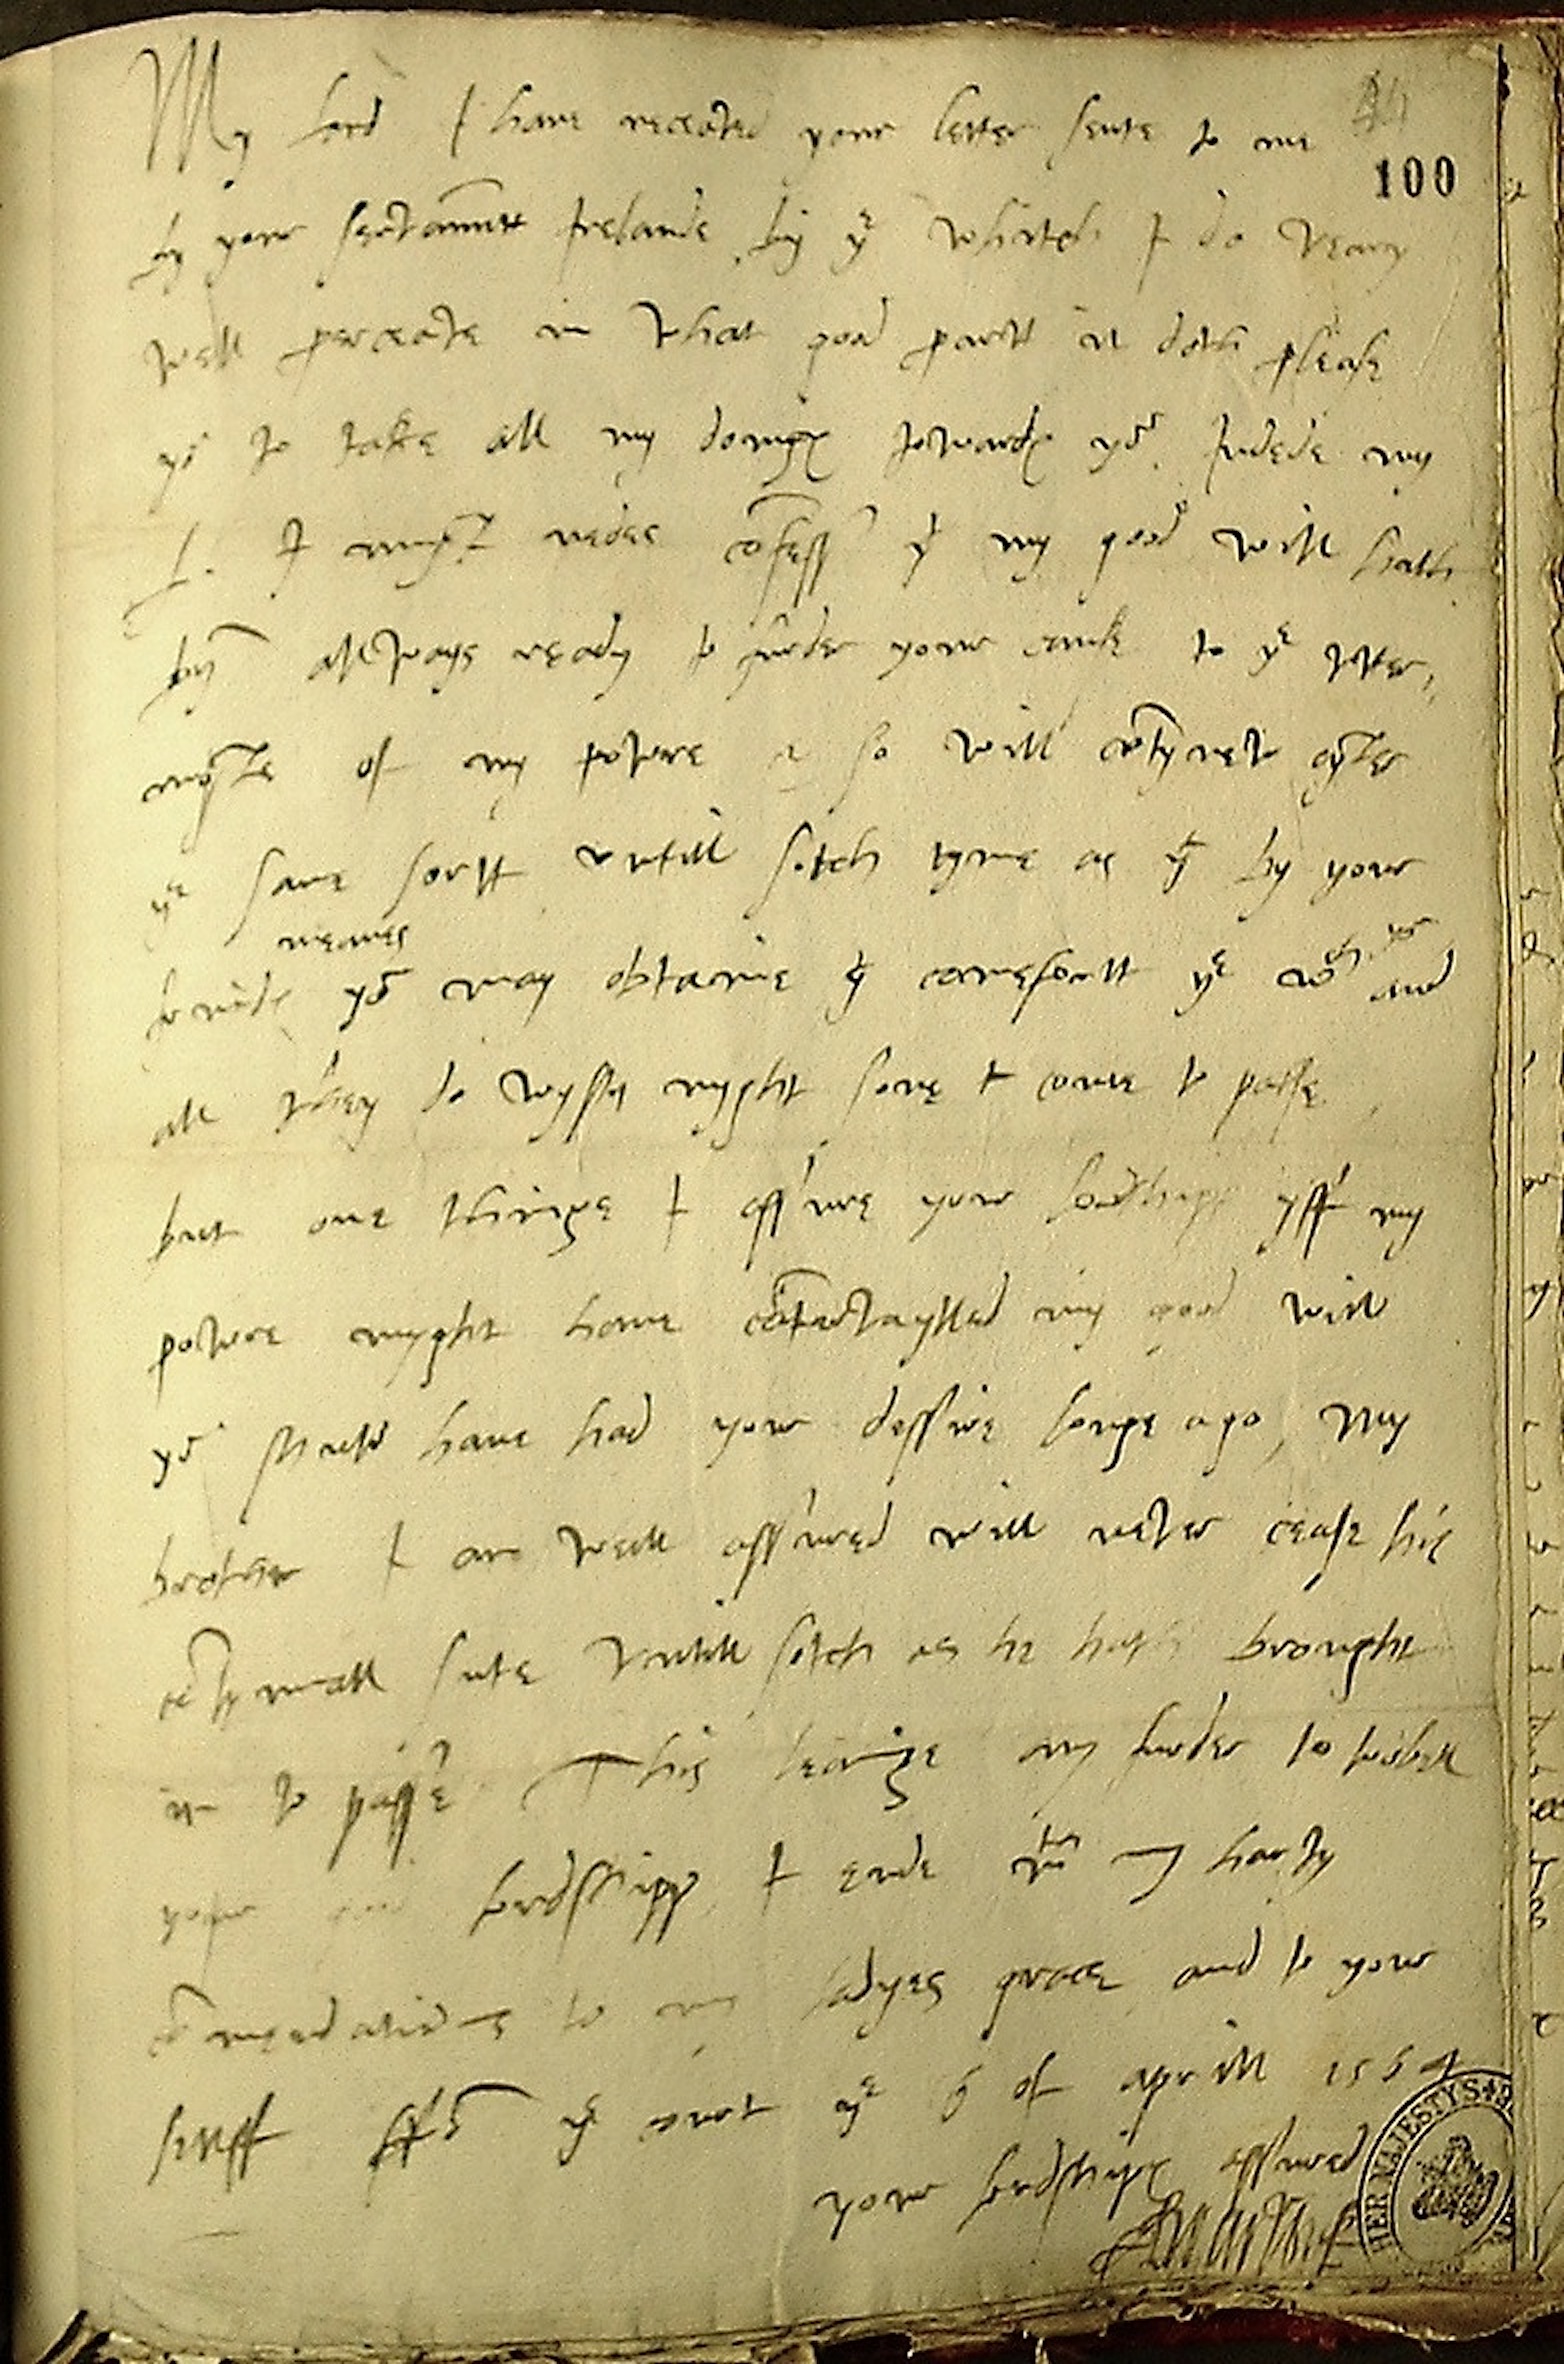 44
My Lord I have receaved your letter sente to me
100
by your servauntt Irelande, by ye which I do veary
well perceave in what good partt it doth please
you to take all my doinges towardes you. Indede my
L. I must nedes cōfess yt my good will hath
byn allways ready to furder your cause to ye utter,,
moste of my powre & so will contynew after
ye same sortt untill sutch tyme as yt by your
frindes meanes you may obtaine yt comefortt ye wch you and
all they do wyssh myght sone I come to passe
but one thinge I assure your lordshipp yff my
powre myght have countervaylled my good will
you shuld have had your dessire longe ago, My
brother I am well assured will never cease his
cōtynuall sute untill sutch as he hath brought
it to passe This leavinge any furder to trobell
your good lordshipp, I ende wth my harty
cōmendations to my ladyes grace and to your
selff frō ye court ye 6 of aprill 1564
your lordshipes assured
HER MAJESTYS